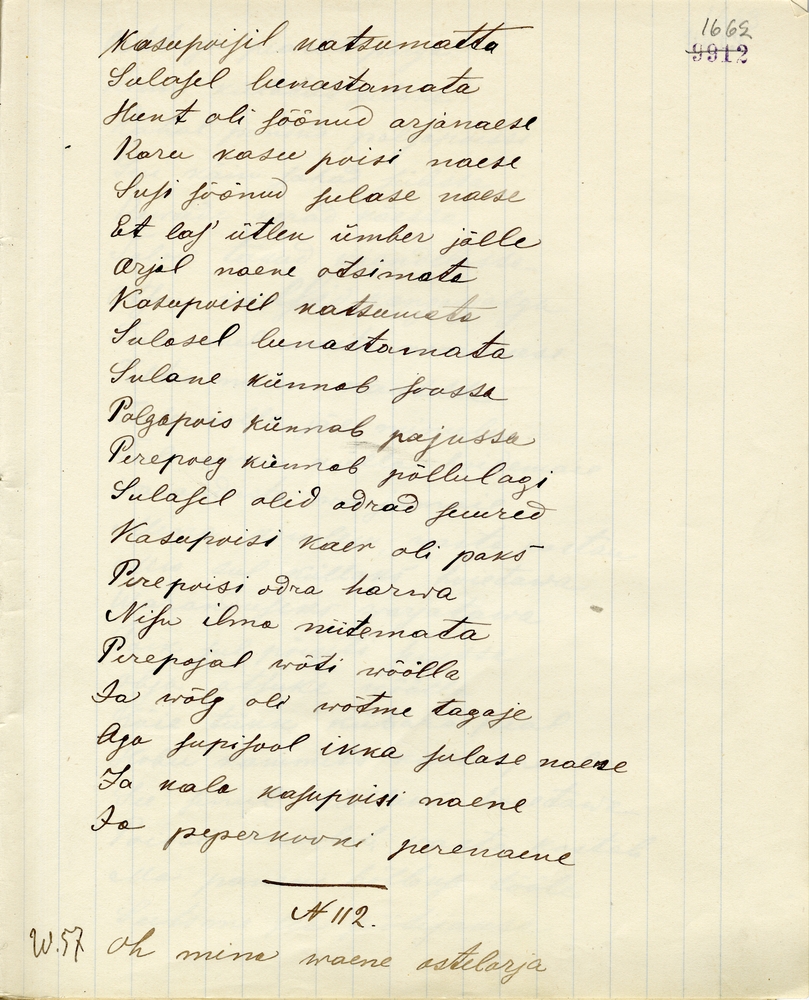 1662
9912
Kasupoisil katsumatta
Sulasel lunastamata
Hunt oli söönud arjanaese
Karu kasu poisi naese
Susi söönud sulase naese
Et las' ütlen ümber jälle
Arjal naene otsimata
Kasupoisil katsumata
Sulasel lunastamata
Sulane künnab soossa
Palgapois künnab pajussa
Perepoeg künnab põllulagi
Sulasel olid odrad suured
Kasupoisi kaer oli paks
Perepoisi odra harwa
Nisu ilma niitemata
Perepojal wõti wöölla
Ja wõlg oli wõtme tagaje
Aga supisool ikka sulase naene
Ja kala kasupoisi naene
Ja peperkooki perenaene
N 112.
W.57 Oh mina waene ostelarja